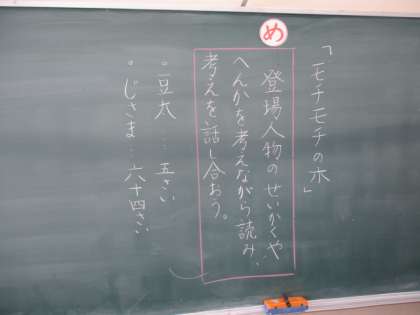 め
「モチモチの木」
登場人物のせいかくや、
へんかを考えながら読み、
考えを話し合おう。
。豆太…五さい
。じさま…六十四さい